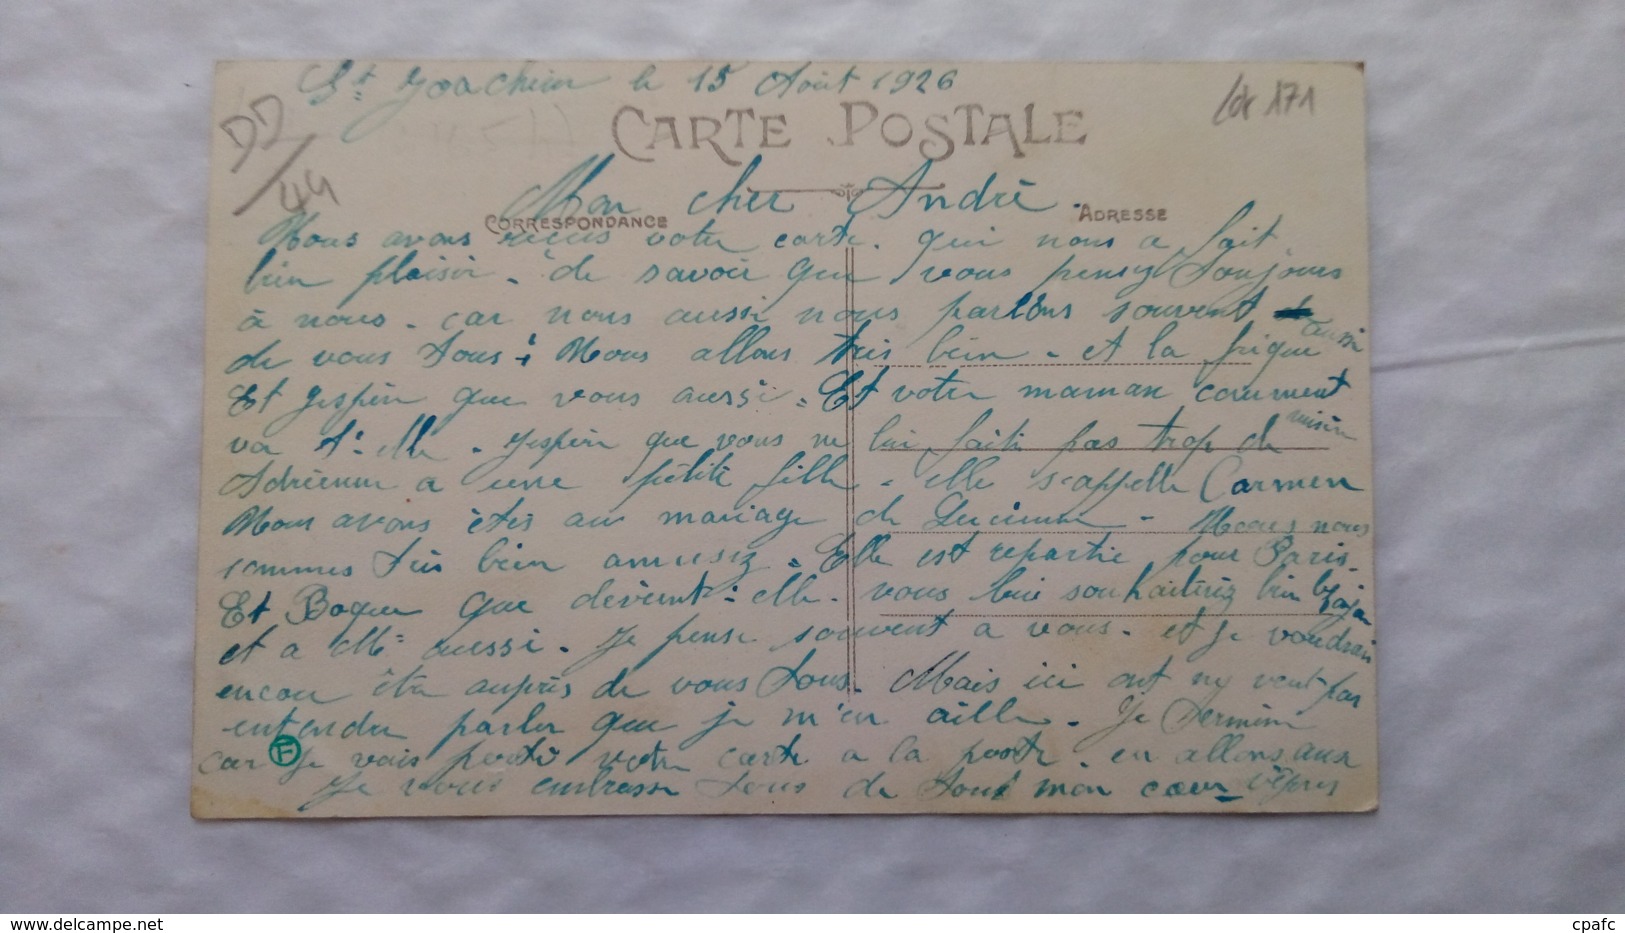 St Joachim le 15 Août 1926
CARTE POSTALE
Lot 171
DD/44
Mon cher André.
CORRESPONDANCE
ADRESSE
Nous avons reçus votre carte. qui nous a fait
bien plaisir. de savoir que vous pensez toujours
à nous. car nous aussi nous parlons souvent
de vous tous. Nous allons très bien. et la frique aussi
Et j'espère que vous aussi. Et votre maman comment
va t'-elle. j'espère que vous ne lui faite pas trop de misère
Adrienne a une petite fille. elle s'appelle Carmen
Nous avons étés au mariage de Lucienne. Nous nous
sommes très bien amusez. Elle est repartie pour Paris.
Et que devient-elle. vous lui souhaiterez bien
et a Mr aussi. Je pense souvent a vous. et je voudrais
encore être auprès de vous tous. Mais ici ont ny veut pas
entendre parler que je m'en aille. Je termine
car je vais porté votre carte a la poste. en allons aux vêpres
F
Je vous embrasse tous de tout mon cœur
www.delcampe.net
cpafc